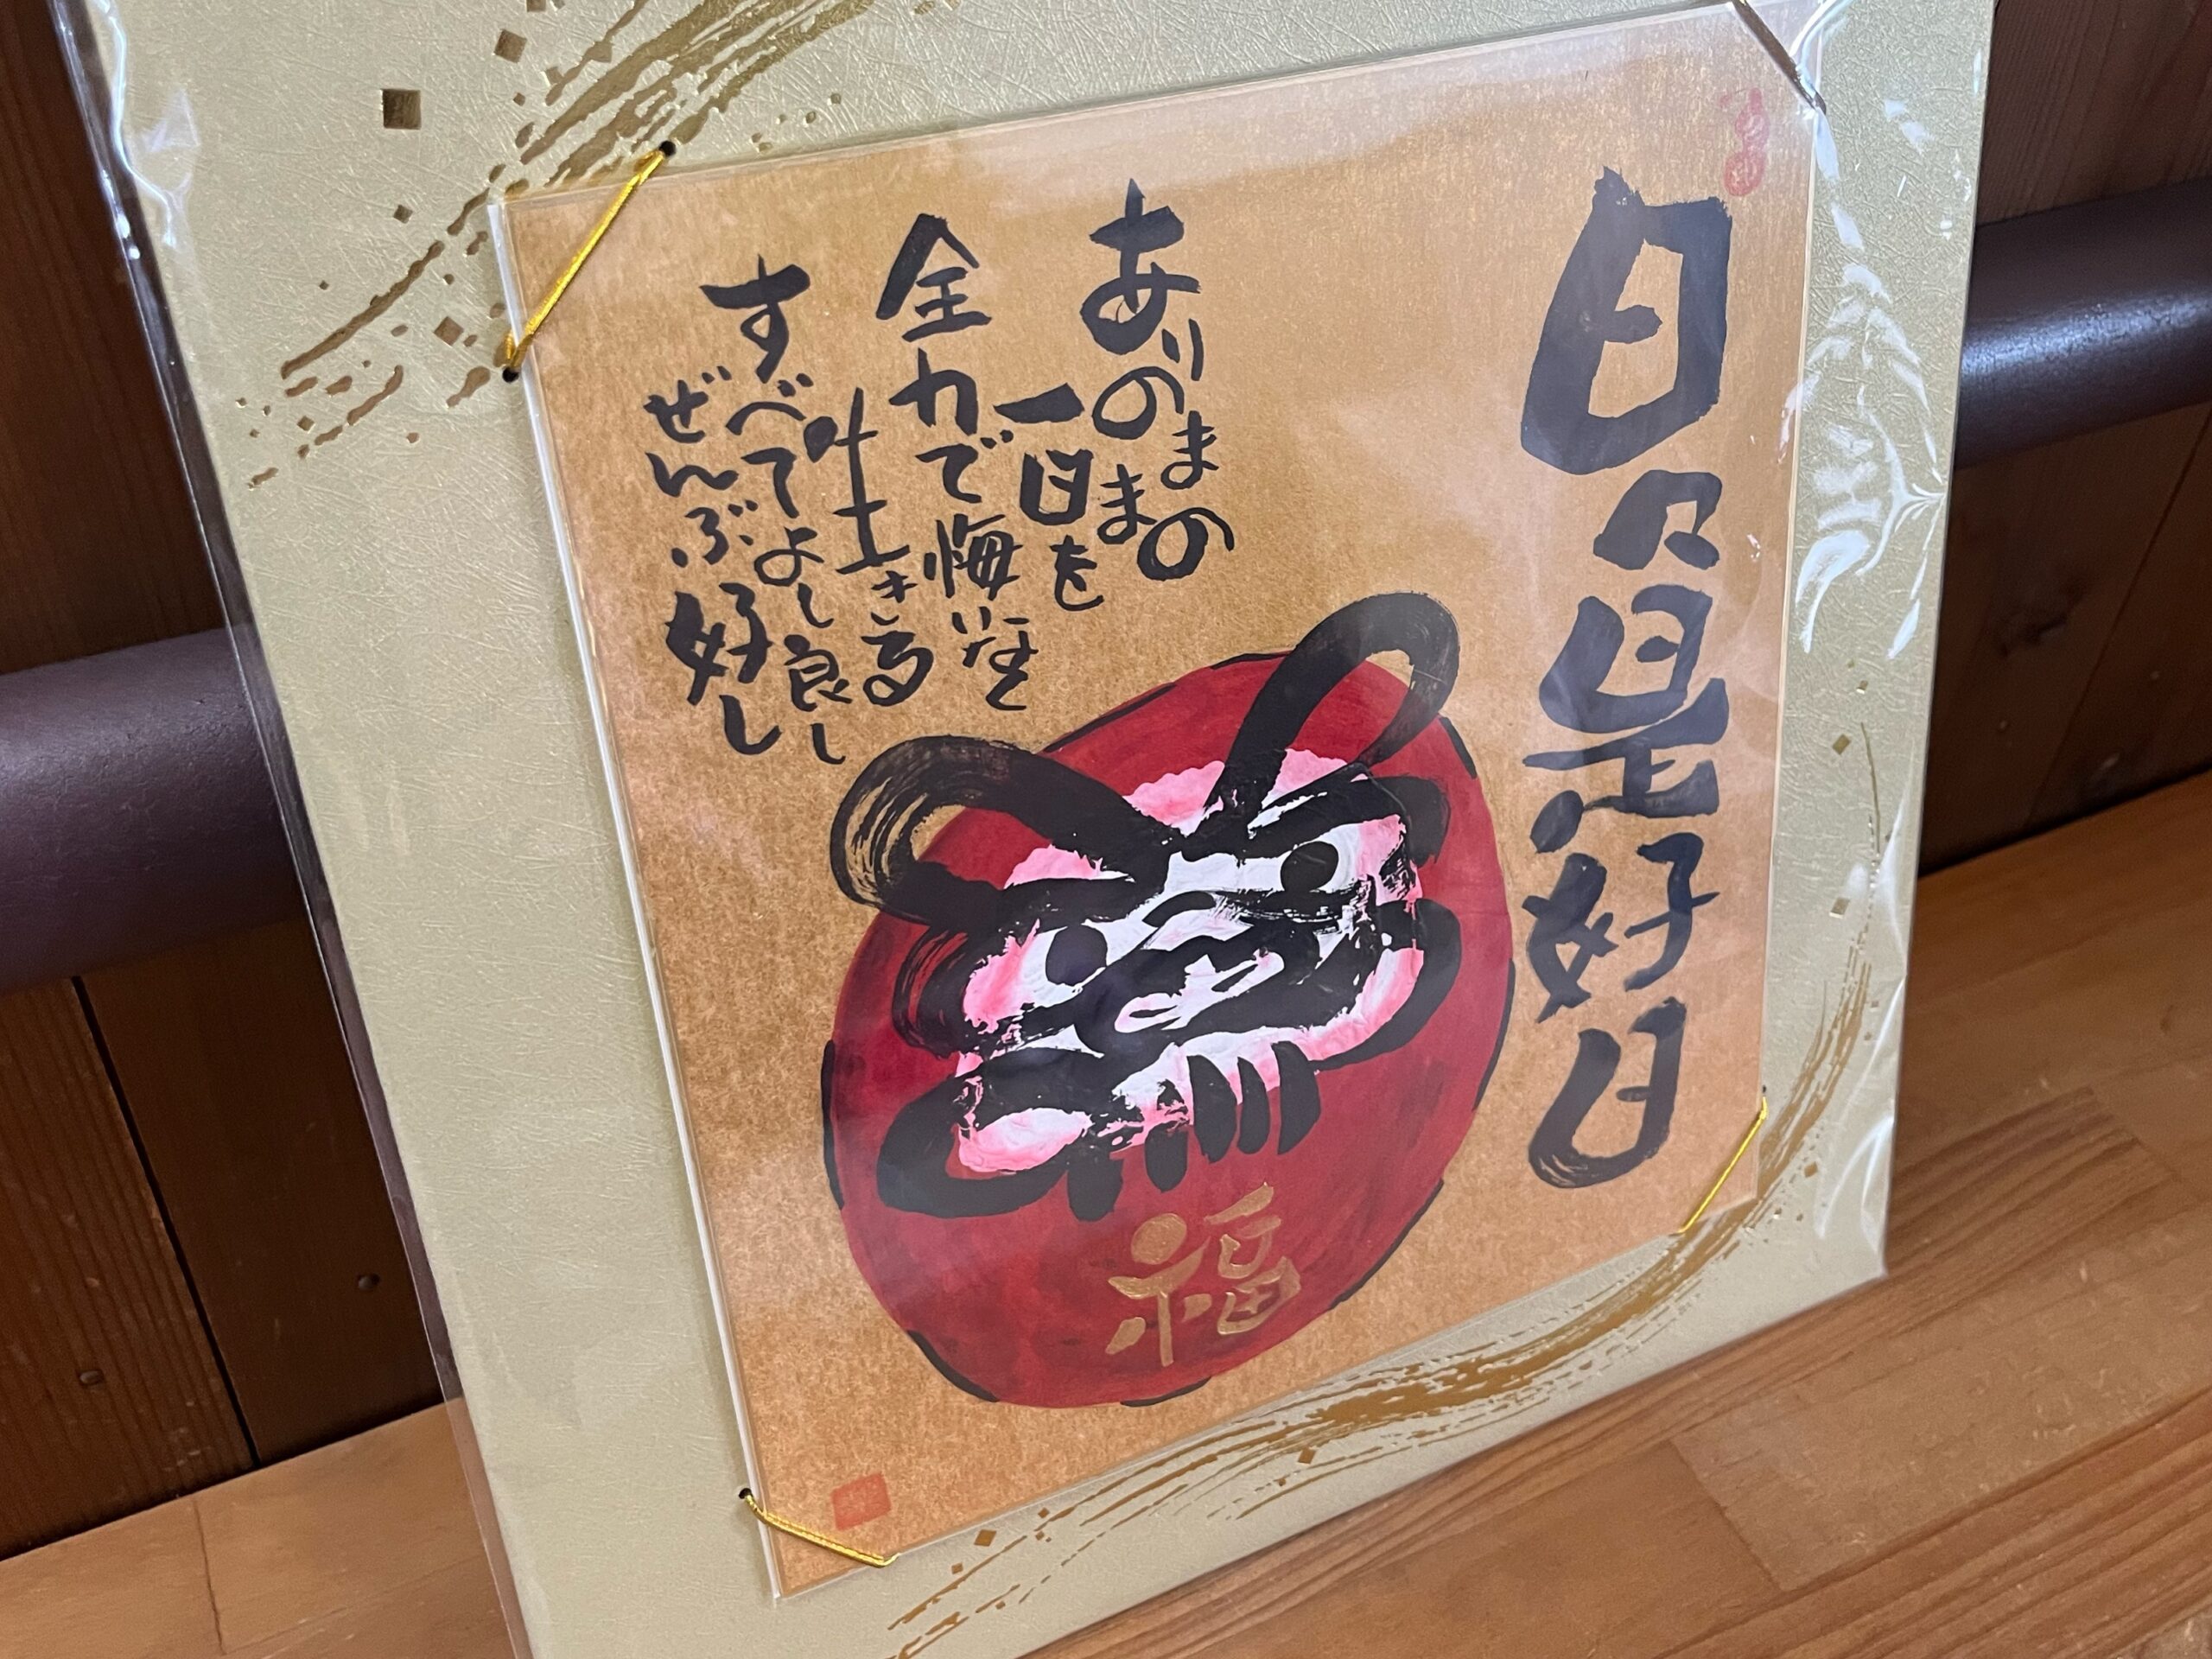 日々是好日
ありのままの
一日を
全力で悔いなく
生きる
すべてよし良し
ぜんぶ好し
福